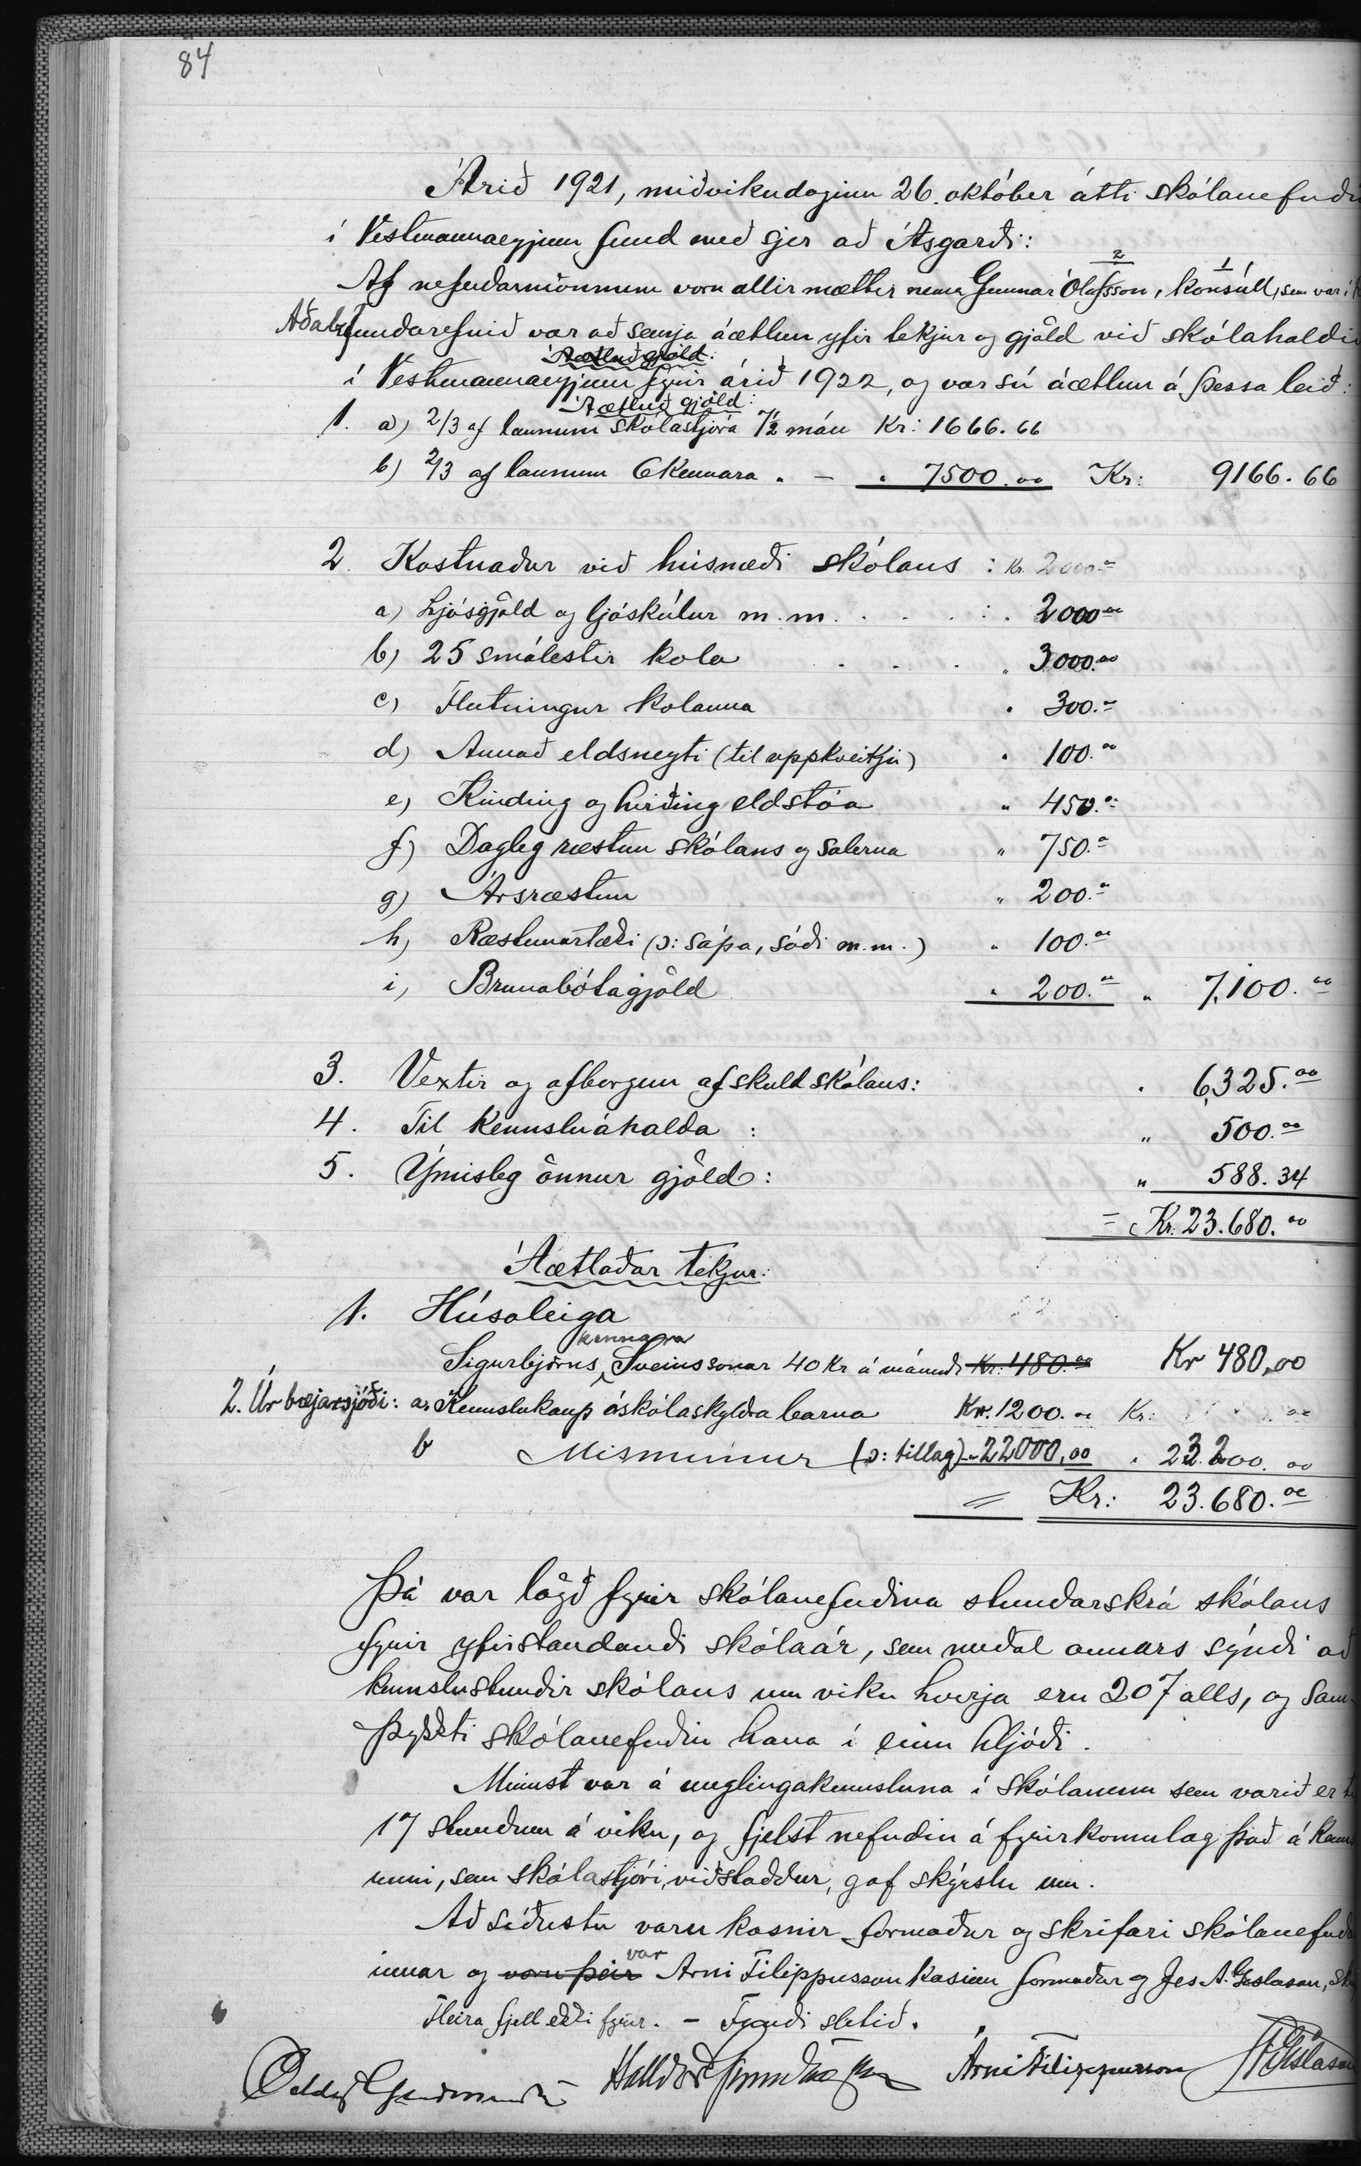 84
Árið 1921, miðvikudaginn 26. október átti skólanefndi
í Vestmannaeyjum fund með sjer að Ásgarði:
Af nefndarmönnum voru allir mættir nema Gunnar Ólafsson, konsúll, sem var í
2 1
Aðalfundarefnið var að semja áætlun yfir tekjur og gjöld við skólahaldið
Áætluð gjöld:
í Vestmannaeyjum fyrir árið 1922, og var sú áætlun á þessa leið:
Áætluð gjöld:
1. a) 2/3 af launum skólastjóra 7 1/2 mán Kr: 1666.66
b) 2/3 af launum 6 kennara " — " 7500.00 Kr: 9166.66
2. Kostnaður við húsnæði skólans : Kr. 2000.00
a) Ljósgjöld og ljóskúlur m.m. . . . : . 2000.00
b) 25 smálestir kola . . . " 3000.00
c) Flutningur kolanna " 300.00
d) Annað eldsneyti (til uppkveikju) " 100.00
e) Kinding og hirðing eldstóa " 450.00
f) Dagleg ræstun skólans og salerna " 750.00
g) Ársræstun " 200.00
h) Ræstunartæki (ɔ: sápa, sódi m.m.) " 100.00
i) Brunabótagjöld " 200.00 " 7,100.00
3. Vextir og afborgun af skuld skólans: " 6,325.00
4. Til kennsluáhalda : " 500.00
5. Ýmisleg önnur gjöld: " 588.34
= Kr. 23.680.00
Áætlaðar tekjur:
1. Húsaleiga
kennara
Sigurbjörns Sveinssonar 40 kr á mánuði Kr: 480.00 Kr 480,00
2. Úr bæjarsjóði: a. Kennslukaup óskólaskyldra barna Kr. 1200.00 Kr: 00
b Mismunur (ɔ: tillag) - 22000,00 " 23.200.00
= Kr: 23.680.00
Þá var lögð fyrir skólanefndina stundarskrá skólans
fyrir yfirstandandi skólaár, sem meðal annars sýndi að
kennslustundir skólans um viku hverja eru 207 alls, og sam-
þykkti skólanefndin hana í einu hljóði.
Minnst var á unglingakennsluna í skólanum sem varið er t
17 stundum á viku, og fjelst nefndin á fyrirkomulag það á kenn
unni, sem skólastjóri, viðstaddur, gaf skýrslu um.
Að síðustu voru kosnir formaður og skrifari skólanefnd
innar og voru þeir var Árni Filippusson kosinn formaður og Jes A. Gíslason, sk
Fleira fjell ekki fyrir. – Fundi slitið.
Árni Filippusson